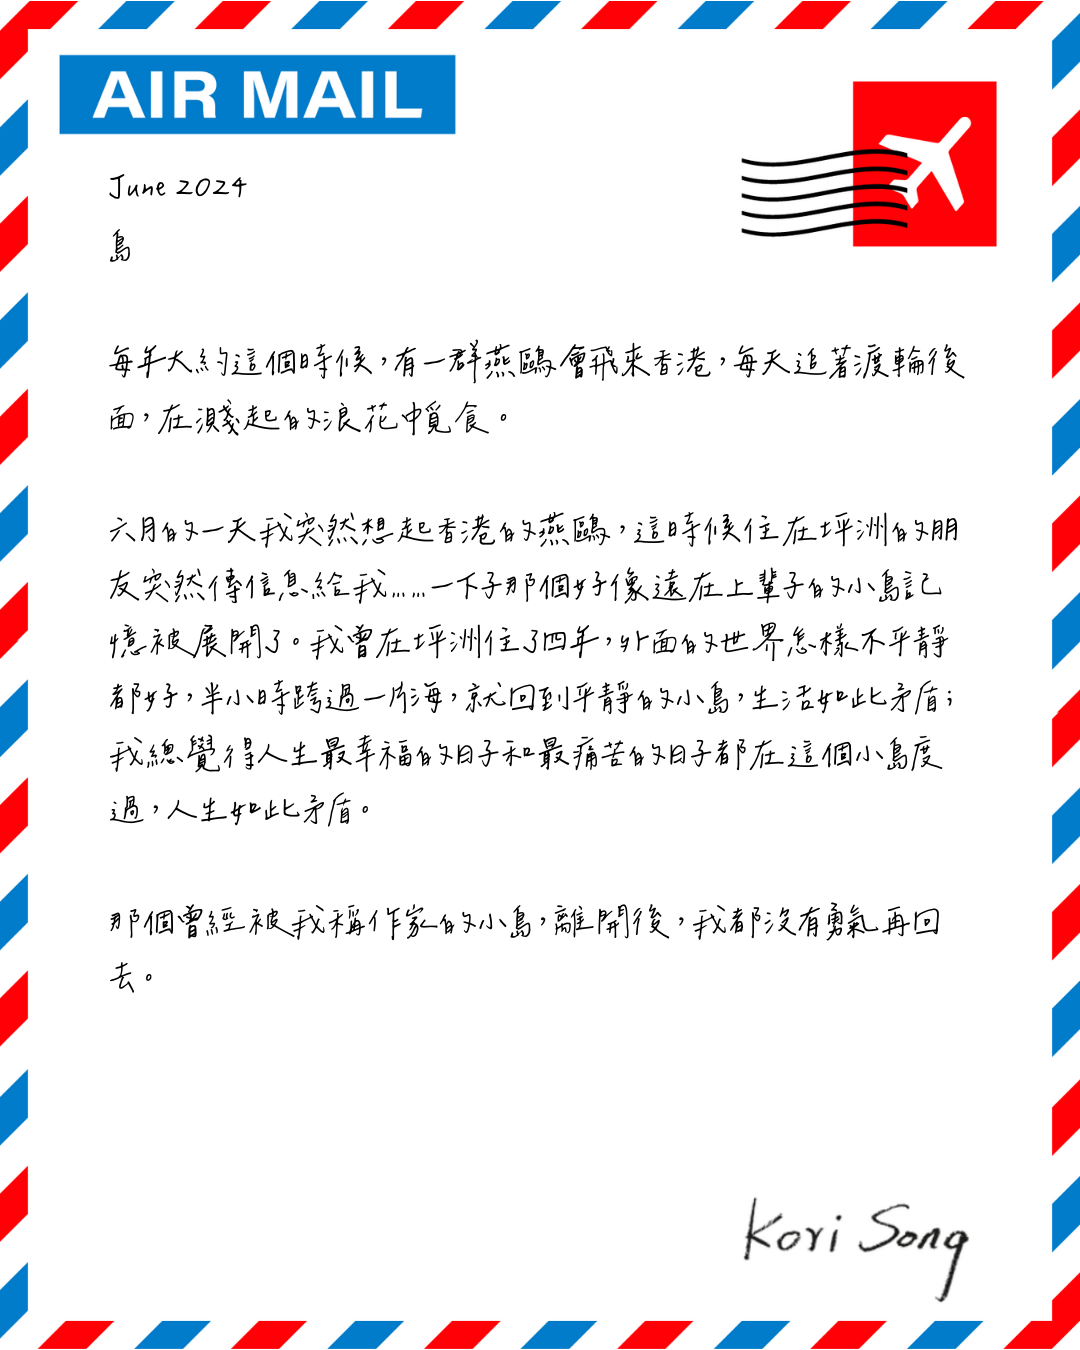 AIR MAIL
June 2024
島
每年大約這個時候，有一群燕鷗會飛來香港，每天追著渡輪後
面，在濺起的浪花中覓食。
六月的一天我突然想起香港的燕鷗，這時候住在坪洲的朋
友突然傳信息給我……一下子那個好像遠在上輩子的小島記
憶被展開了。我曾在坪洲住了四年，外面的世界怎樣不平靜
都好，半小時跨過一片海，就回到平靜的小島，生活如此矛盾；
我總覺得人生最幸福的日子和最痛苦的日子都在這個小島度
過，人生如此矛盾。
那個曾經被我稱作家的小島，離開後，我都沒有勇氣再回
去。
Kori Song